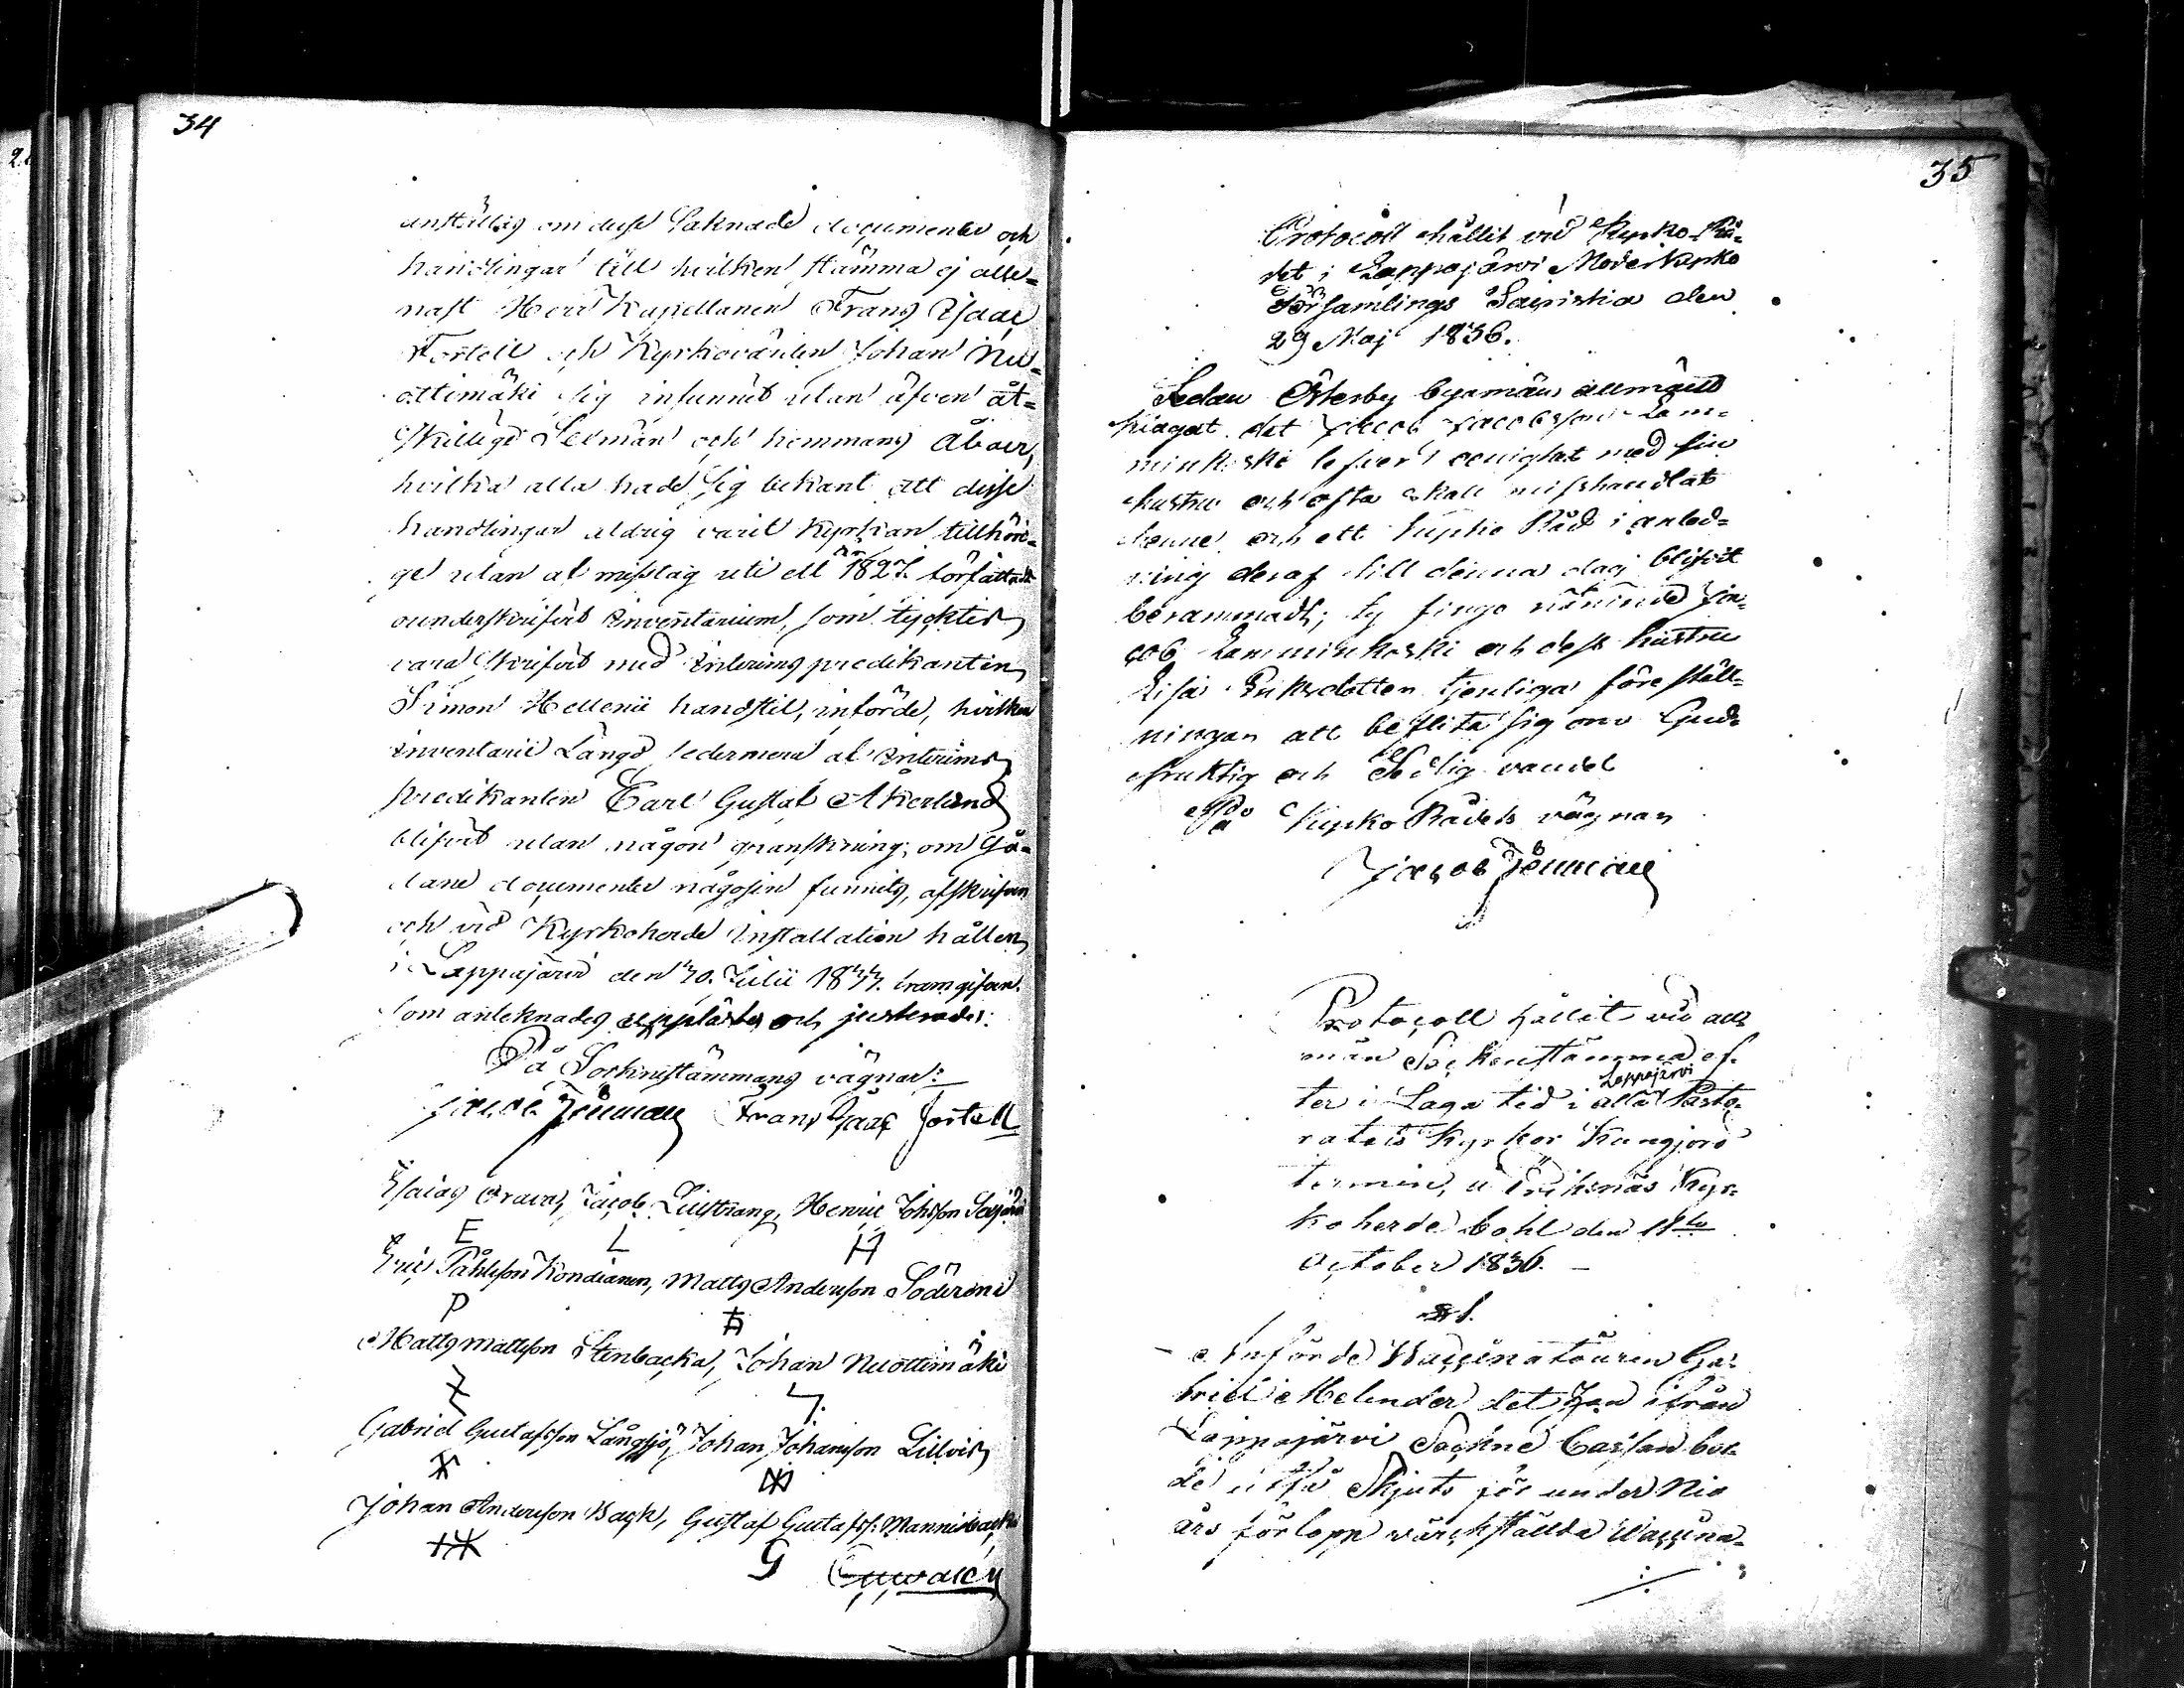 34
anställas om desse saknade documenter och
handlingar till hvilken stämma ej alle=
nast Herr Kapellanen Frans Isaac
Fortell och Kyrkovärden Johan Nu=
ottimäki sig infunnit utan äfven åt=
skillige Sexmän och hemmans åboer,
hvilka alla hade sig bekant att desse
handlingar aldrig varit Kyrkan tillhöri=
ge utan af misstag uti ett år 1827 författadt
ounderskrifvit Inventarium, som tycktes
vara skrifvit med Interims predikanten
Simon Hellenii handstil, införde, hvilken
Inventarii Längd sedermera af Interims
predikanten Carl Gustaf Åkerlund
blifvit utan någon granskning, om så=
dane documenter någosin funnits, afskrifven
och vid Kyrkoherde Installation hållen
i Lappajärvi den 30. Julii 1833. framgifven.
Som anteknades upplästes och justerades.
På Socknestämmans vägnar:
Jacob Fönman Frans Isaac Fortell
Esaias Orava, Jacob Lillstrang, Henric Johsson Savjärvi
E L H
Eric Påhlsson Kondianen, Matts Andersson Söderend
P
Matts Mattsson Stenbacka, Johan Nuottimäki
Gabriel Gustafsson Långsjö, Johan Johansson Lillvis
Johan Andersson Back, Gustaf Gustafss: Mannisbacka
G
35
Protocoll hållit vid Kyrko-Rå=
det i Lappajärvi Moderkyrko
Församlings Sacristia den
29 Maj 1836.
Sedan Österby byamän allmänt
klagat det Jacob Jacobsson Lam=
minkoski lefver i oenighet med sin
hustru och ofta skall misshandlat
henne och ett Kyrko Råd i anled=
ning deraf till denna dag blifvit
berammadt; ty fingo nämnde Ja=
cob Lamminkoski och dess hustru
Lisa Eriksdotter tjenliga föreställ=
ningar att beflita sig om Gud=
fruktig och Sedlig vandel
På Kyrko Rådets vägnar
Jacob Fönman
Protocoll hållit vid all=
män Sockenstämma ef=
ter i Laga tid i alla Lappajärvi Pasto=
ratets Kyrkor Kungjord
termin, å Eriksnäs Kyr=
koherde bohl den 18de
October 1836. –
§ 1.
– Införde Vaccinatören Ga=
briel Melender det han ifrån
Lappajärvi Sockne Cassan bor=
de utfå Skjuts för under Nio
års förlopp värkställda Vaccina=